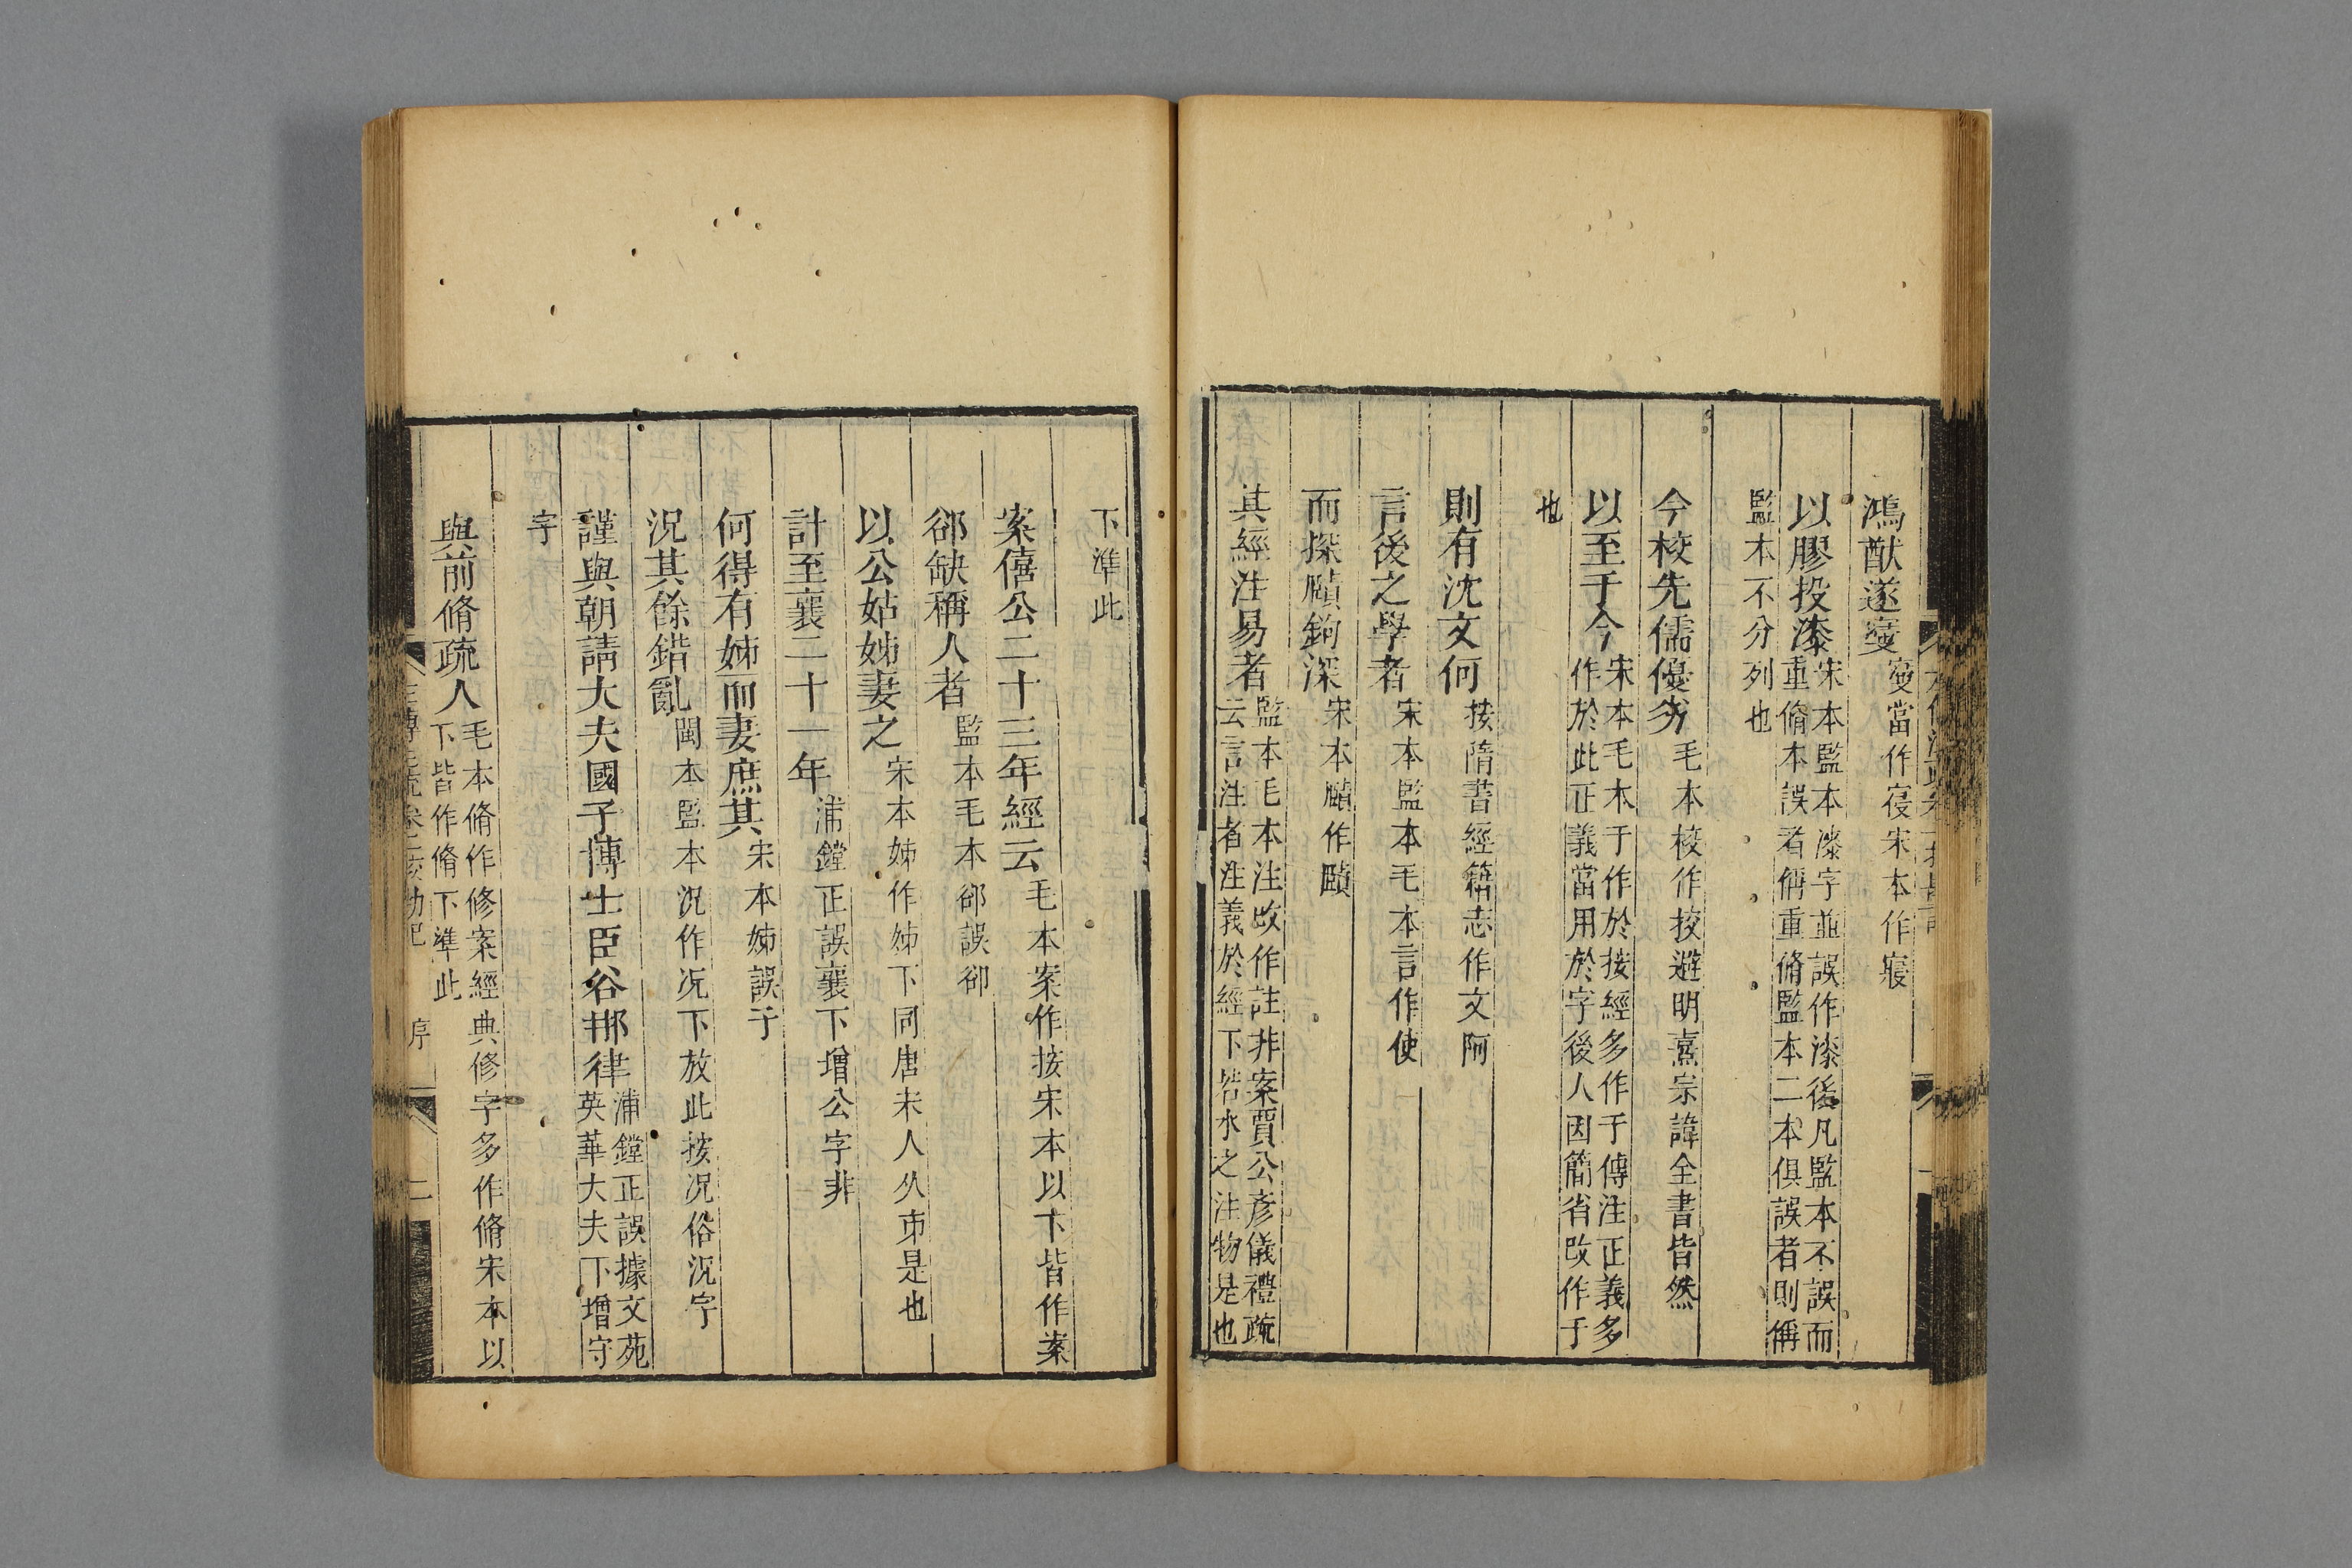 鴻猷遂寖寖當作寑宋本作寢
以膠投漆宋本監本漆字並誤作漆後凡監本不誤而
重脩本誤者偁重脩監本二本俱誤者則偁
監本不分列也
今校先儒優劣毛本校作挍避明熹宗諱全書皆然
以至于今宋本毛本于作於按經多作于傳注正義多
作於此正義當用於字後人因簡省改作于
也
則有沈文何按隋書經籍志作文阿
言後之學者宋本監本毛本言作使
而探賾鉤深宋本賾作賾
其經注易者監本毛本注改作註非案賈公彥儀禮疏
云言注者注義於經下若水之注物是也
下準此
案僖公二十三年經云毛本案作按宋本以下皆作案
郤缺稱人者監本毛本郤誤卻
以公姑姊妻之宋本姊作姉下同唐宋人从市是也
計至襄二十一年浦鏜正誤襄下增公字非
何得有姊而妻庶其宋本姊誤于
況其餘錯亂閩本監本況作况下放此按况俗況字
謹與朝請大夫國子博士臣谷那律浦鏜正誤據文苑
英華大夫下增守
字
與前脩疏人毛本脩作修案經典修字多作脩宋本以
下皆作脩下準此
序
二